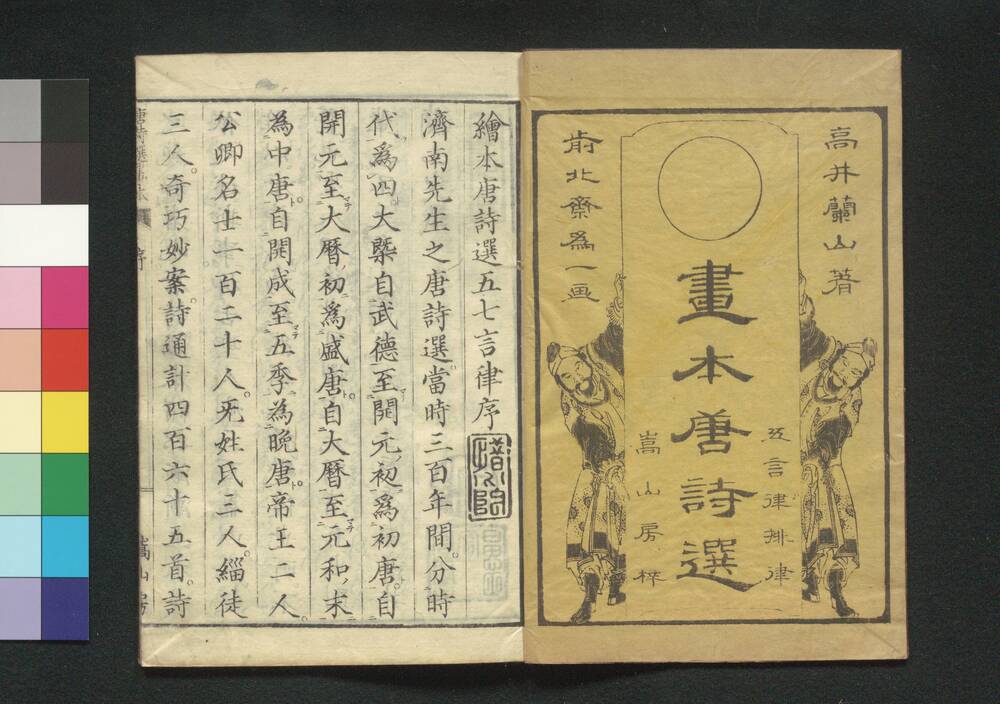 高井蘭山著
畫本唐詩選
五言律排律
嵩山房梓
前北齋為一画
繪本唐詩選五七言律序
濟南先生之唐詩選當時三百年間分時
代為四大槩自武德至開元初爲初唐自
開元至大曆初爲盛唐自大曆至元和末
為中唐自開成至五季為晚唐帝王二人
公卿名士一百二十人无姓氏三人緇徒
三人奇巧妙案詩通計四百六十五首詩
序
嵩山房